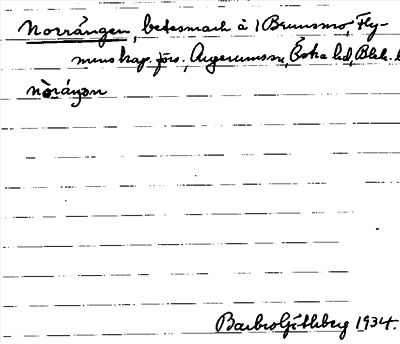 Norrängen, betesmark å 1 Brunsmo, Fly-
menskap. förs., Augerumssn, Östra hd, Blek. l
nòráŋən
Barbro Götheberg 1934.